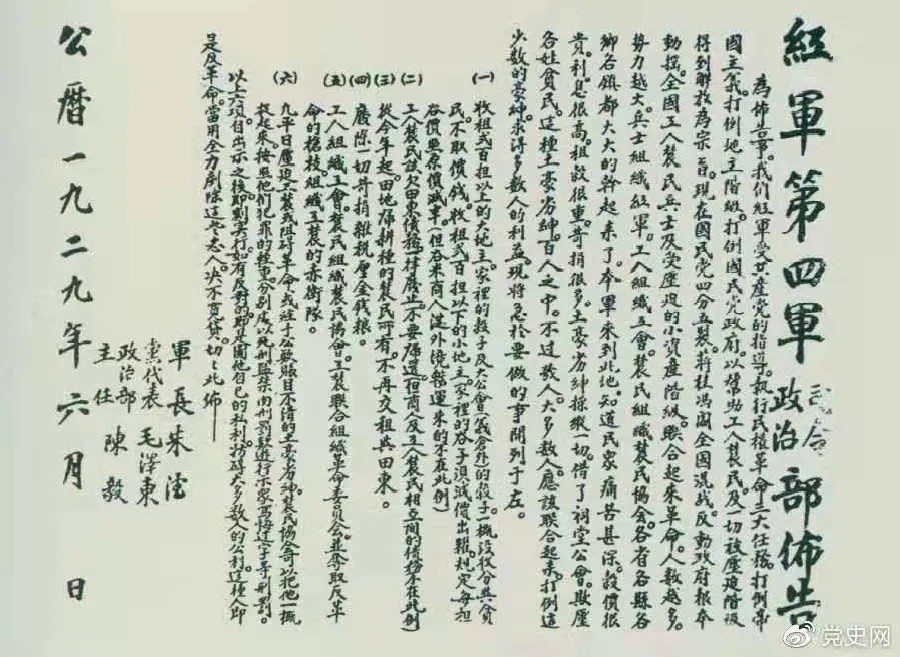 紅軍第四軍司令政治部佈告
為佈告事。我們紅軍受共產党的指導。执行民权革命三大任務。打倒帝
國主義。打倒地主階級。打倒國民党政府。以幫助工人農民及一切被壓迫階級
得到解放為宗旨。現在國民党四分五裂。蒋桂馮阎全國混战。反動政府根本
動搖。全國工人農民兵士及受壓迫的小資產階級。联合起來革命。人数越多。
势力越大。兵士組織紅軍。工人組織工會。農民組織農民協会。各省各縣各
鄉各镇都大大的幹起來了。本軍來到此地。知道民眾痛苦甚深。穀價很
貴。利息很高。租穀很重。苛捐很多。土豪劣紳操縱一切。借了祠堂公會。欺壓
各姓貧民。這種土豪劣紳。百人之中。不过数人。大多数人應該联合起來。打倒這
少数的豪紳。求得多数人的利益。現將急於要做的事開列于左。
(一) 收租弍百担以上的大地主家裡的穀子及大公會(義倉外)的穀子一概没收分與貧
民。不取價钱。收租弍百担以下的小地主家裡的谷子須減價出糶。規定每担
谷價照原價減半。(但谷米商人從外境販運來的不在此例)
(二) 工人農民該欠田東債務。一律廢止。不要歸還。(但商人及工人農民相互间的債務不在此例)
(三) 從今年起。田地歸耕種的農民所有。不再交租與田東。
(四) 廢除一切苛捐雜税厘金钱粮。
(五) 工人組織工會。農民組織農民協會。工農联合組織革命委員会。並奪取反革
命的槍枝。組織工農的赤衛隊。
(六) 九平日壓迫工農或阻碍革命或經手公款賬目不清的土豪劣紳。農民協会可以把他一概
捉起來。按照他们犯罪的輕重。分别處以死刑監禁肉刑罰款遊行示眾寫悔过字等刑罰。
以上六項自出示之後即刻实行。如有反對的即是圖他自己的私利。妨碍大多数人的公利。這種人即
是反革命。當用全力剷除這些惡人。决不寬貸。切切此佈
軍長朱德
党代表毛澤東
政治部主任陳毅
公曆一九二九年六月 日
党史网